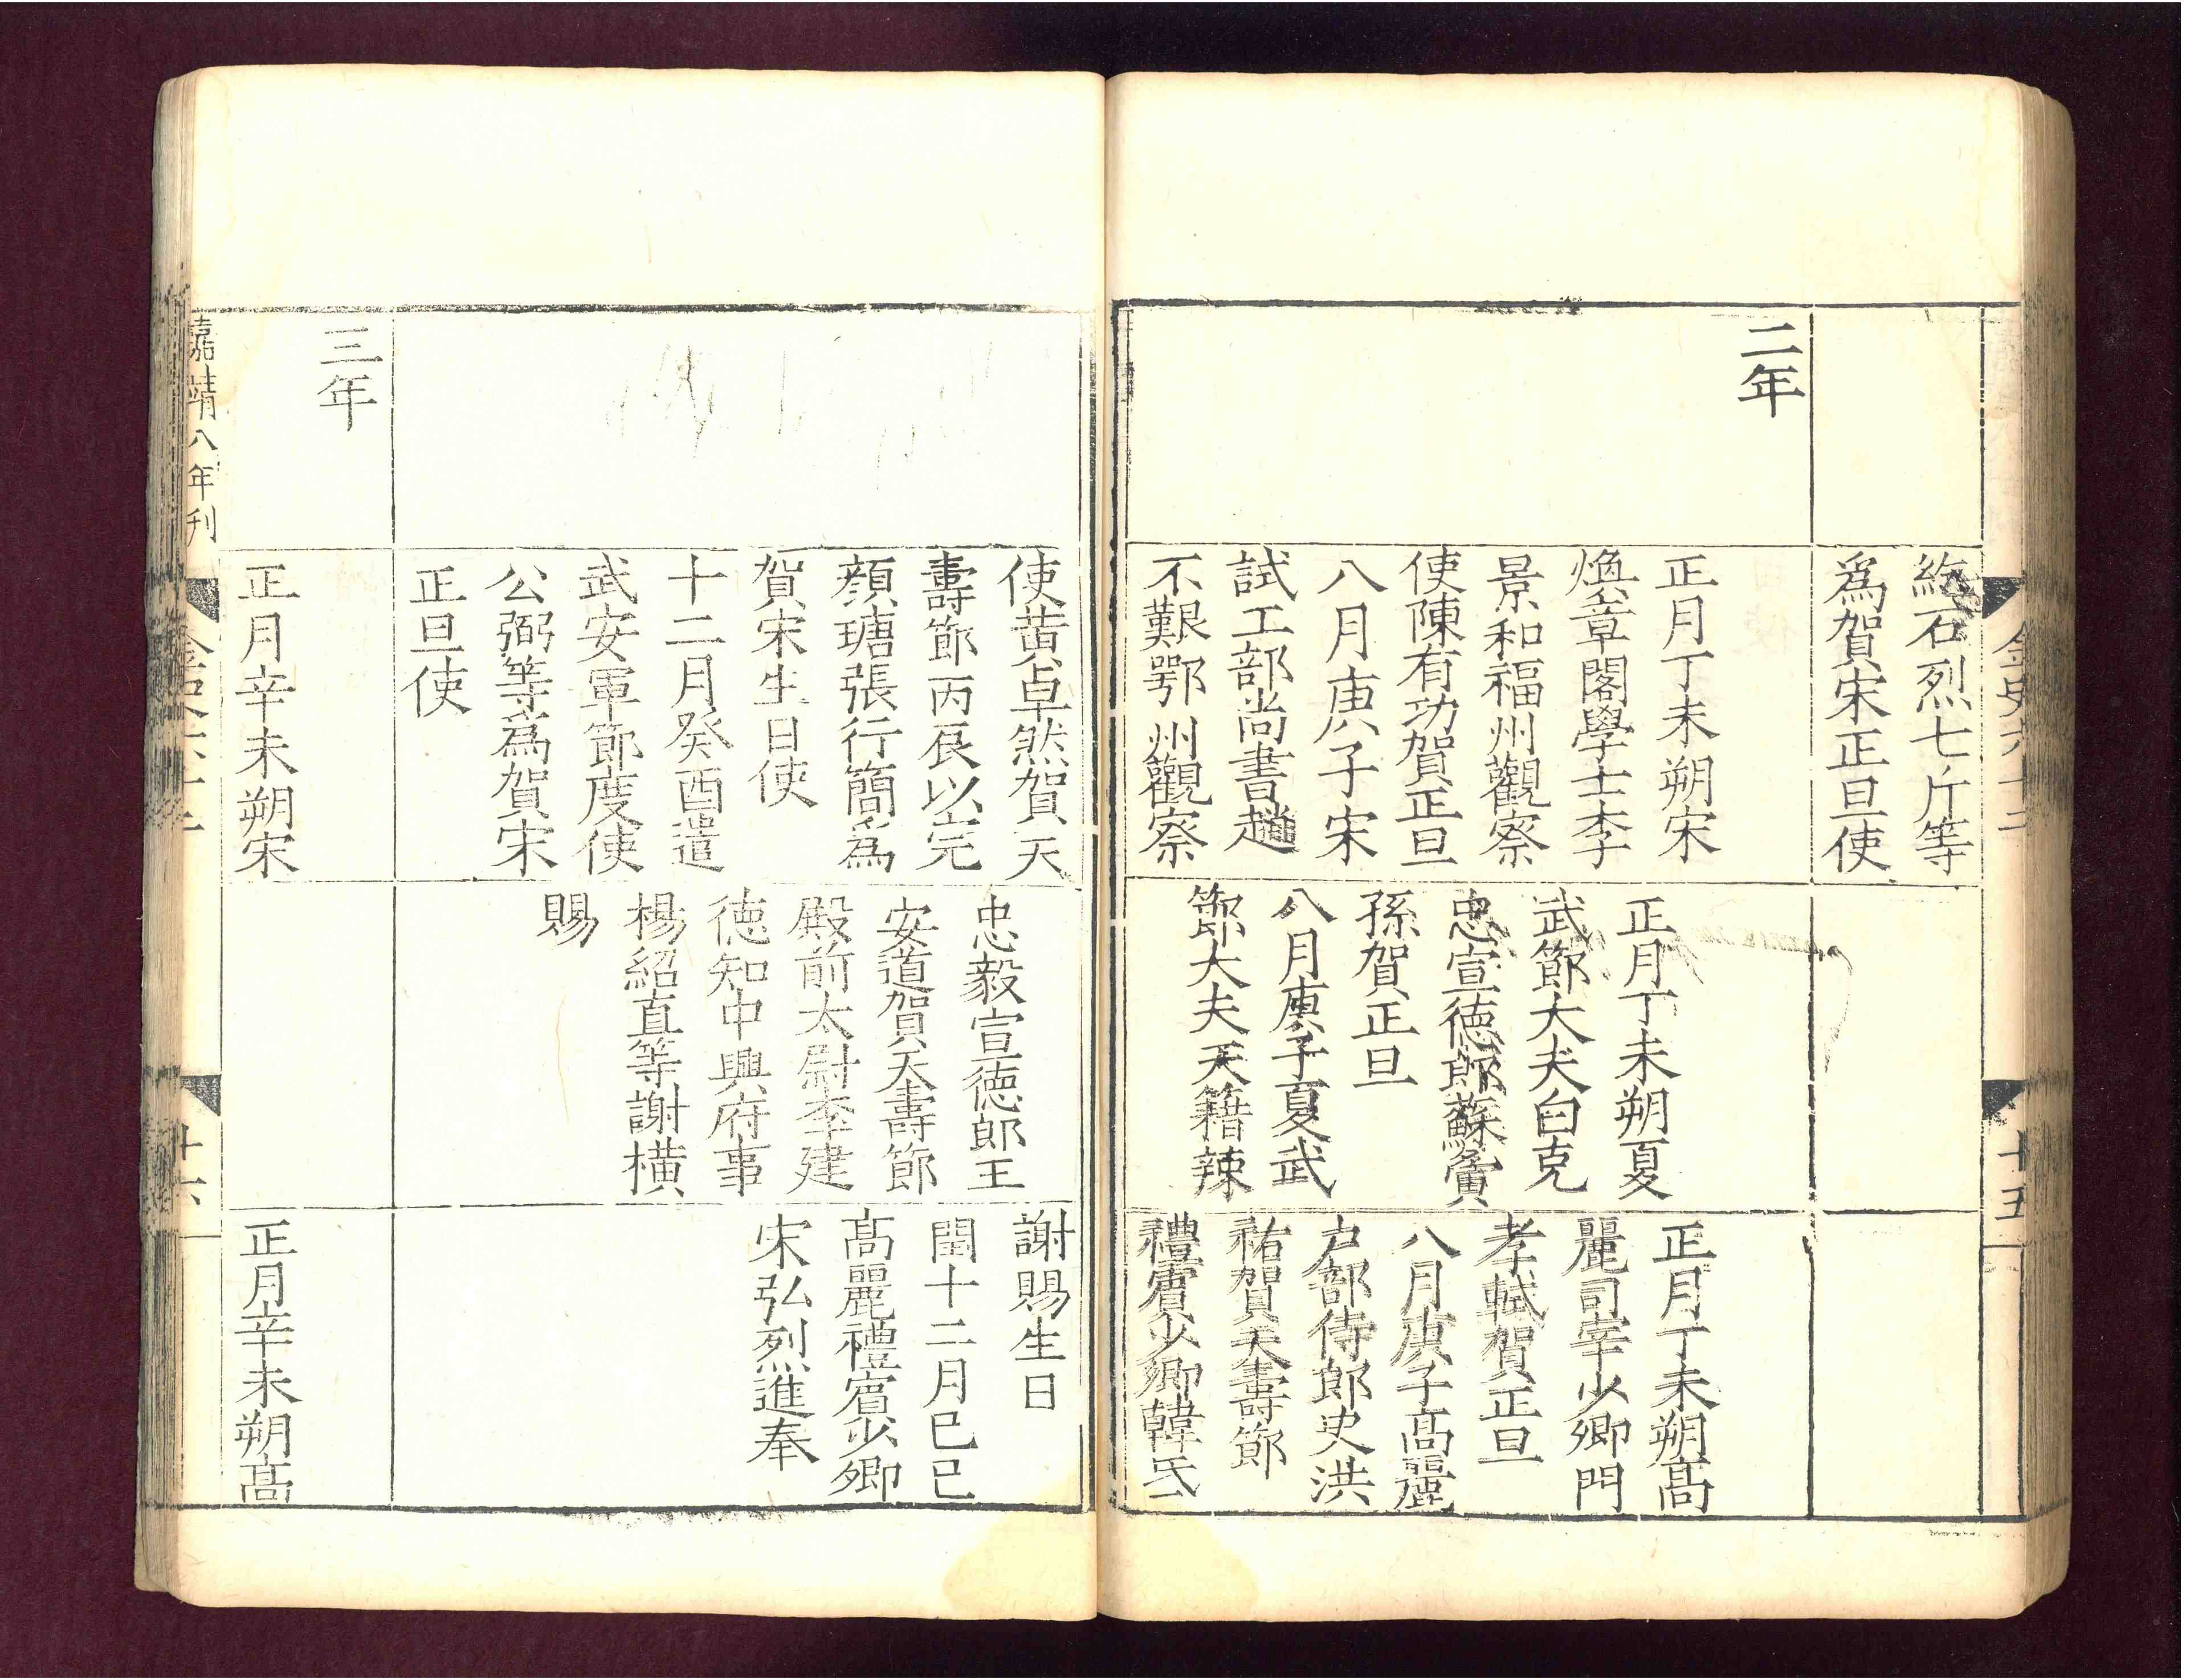 金史六十二
十五
紇石烈七斤等
爲賀宋正旦使
二年
正月丁未朔宋
煥章閣學士李
景和福州觀察
使陳有功賀正旦
八月庚子宋
試工部尚書趙
不艱鄂州觀察
正月丁未朔夏
武節大夫白克
忠宣德郎蘇夤
孫賀正旦
八月庚子夏武
節大夫天籍辣
正月丁未朔髙
麗司宰少卿門
孝軾賀正旦
八月庚子髙麗
户部侍郎史洪
祐賀天壽節
禮賓少卿韓氐
使黃卓然賀天
壽節丙辰以完
顔瑭張行簡爲
賀宋生日使
十二月癸酉遣
武安軍節度使
公弼等爲賀宋
正旦使
忠毅宣德郎王
安道賀天壽節
殿前太尉李建
德知中興府事
楊紹直等謝横
賜
謝賜生日
閏十二月己巳
髙麗禮賓少卿
宋弘烈進奉
三年
正月辛未朔宋
正月辛未朔髙
嘉靖八年刊
金史六十二
十六